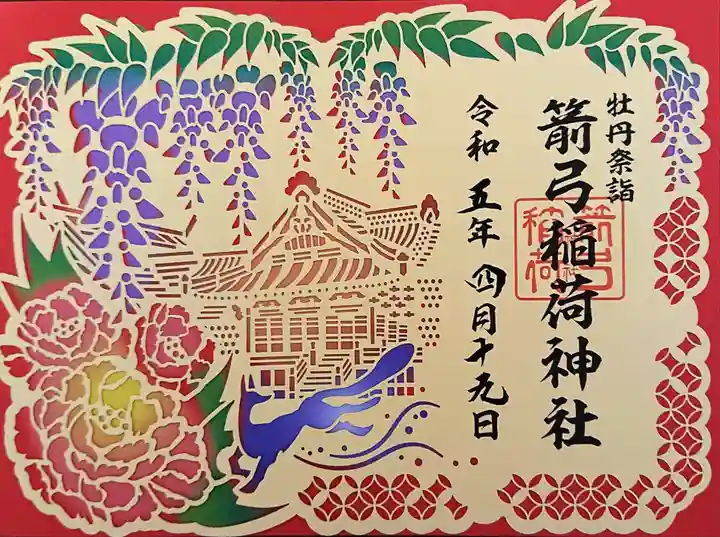 牡丹祭詣
箭弓稲荷神社
令和五年四月十九日
箭弓
稲荷